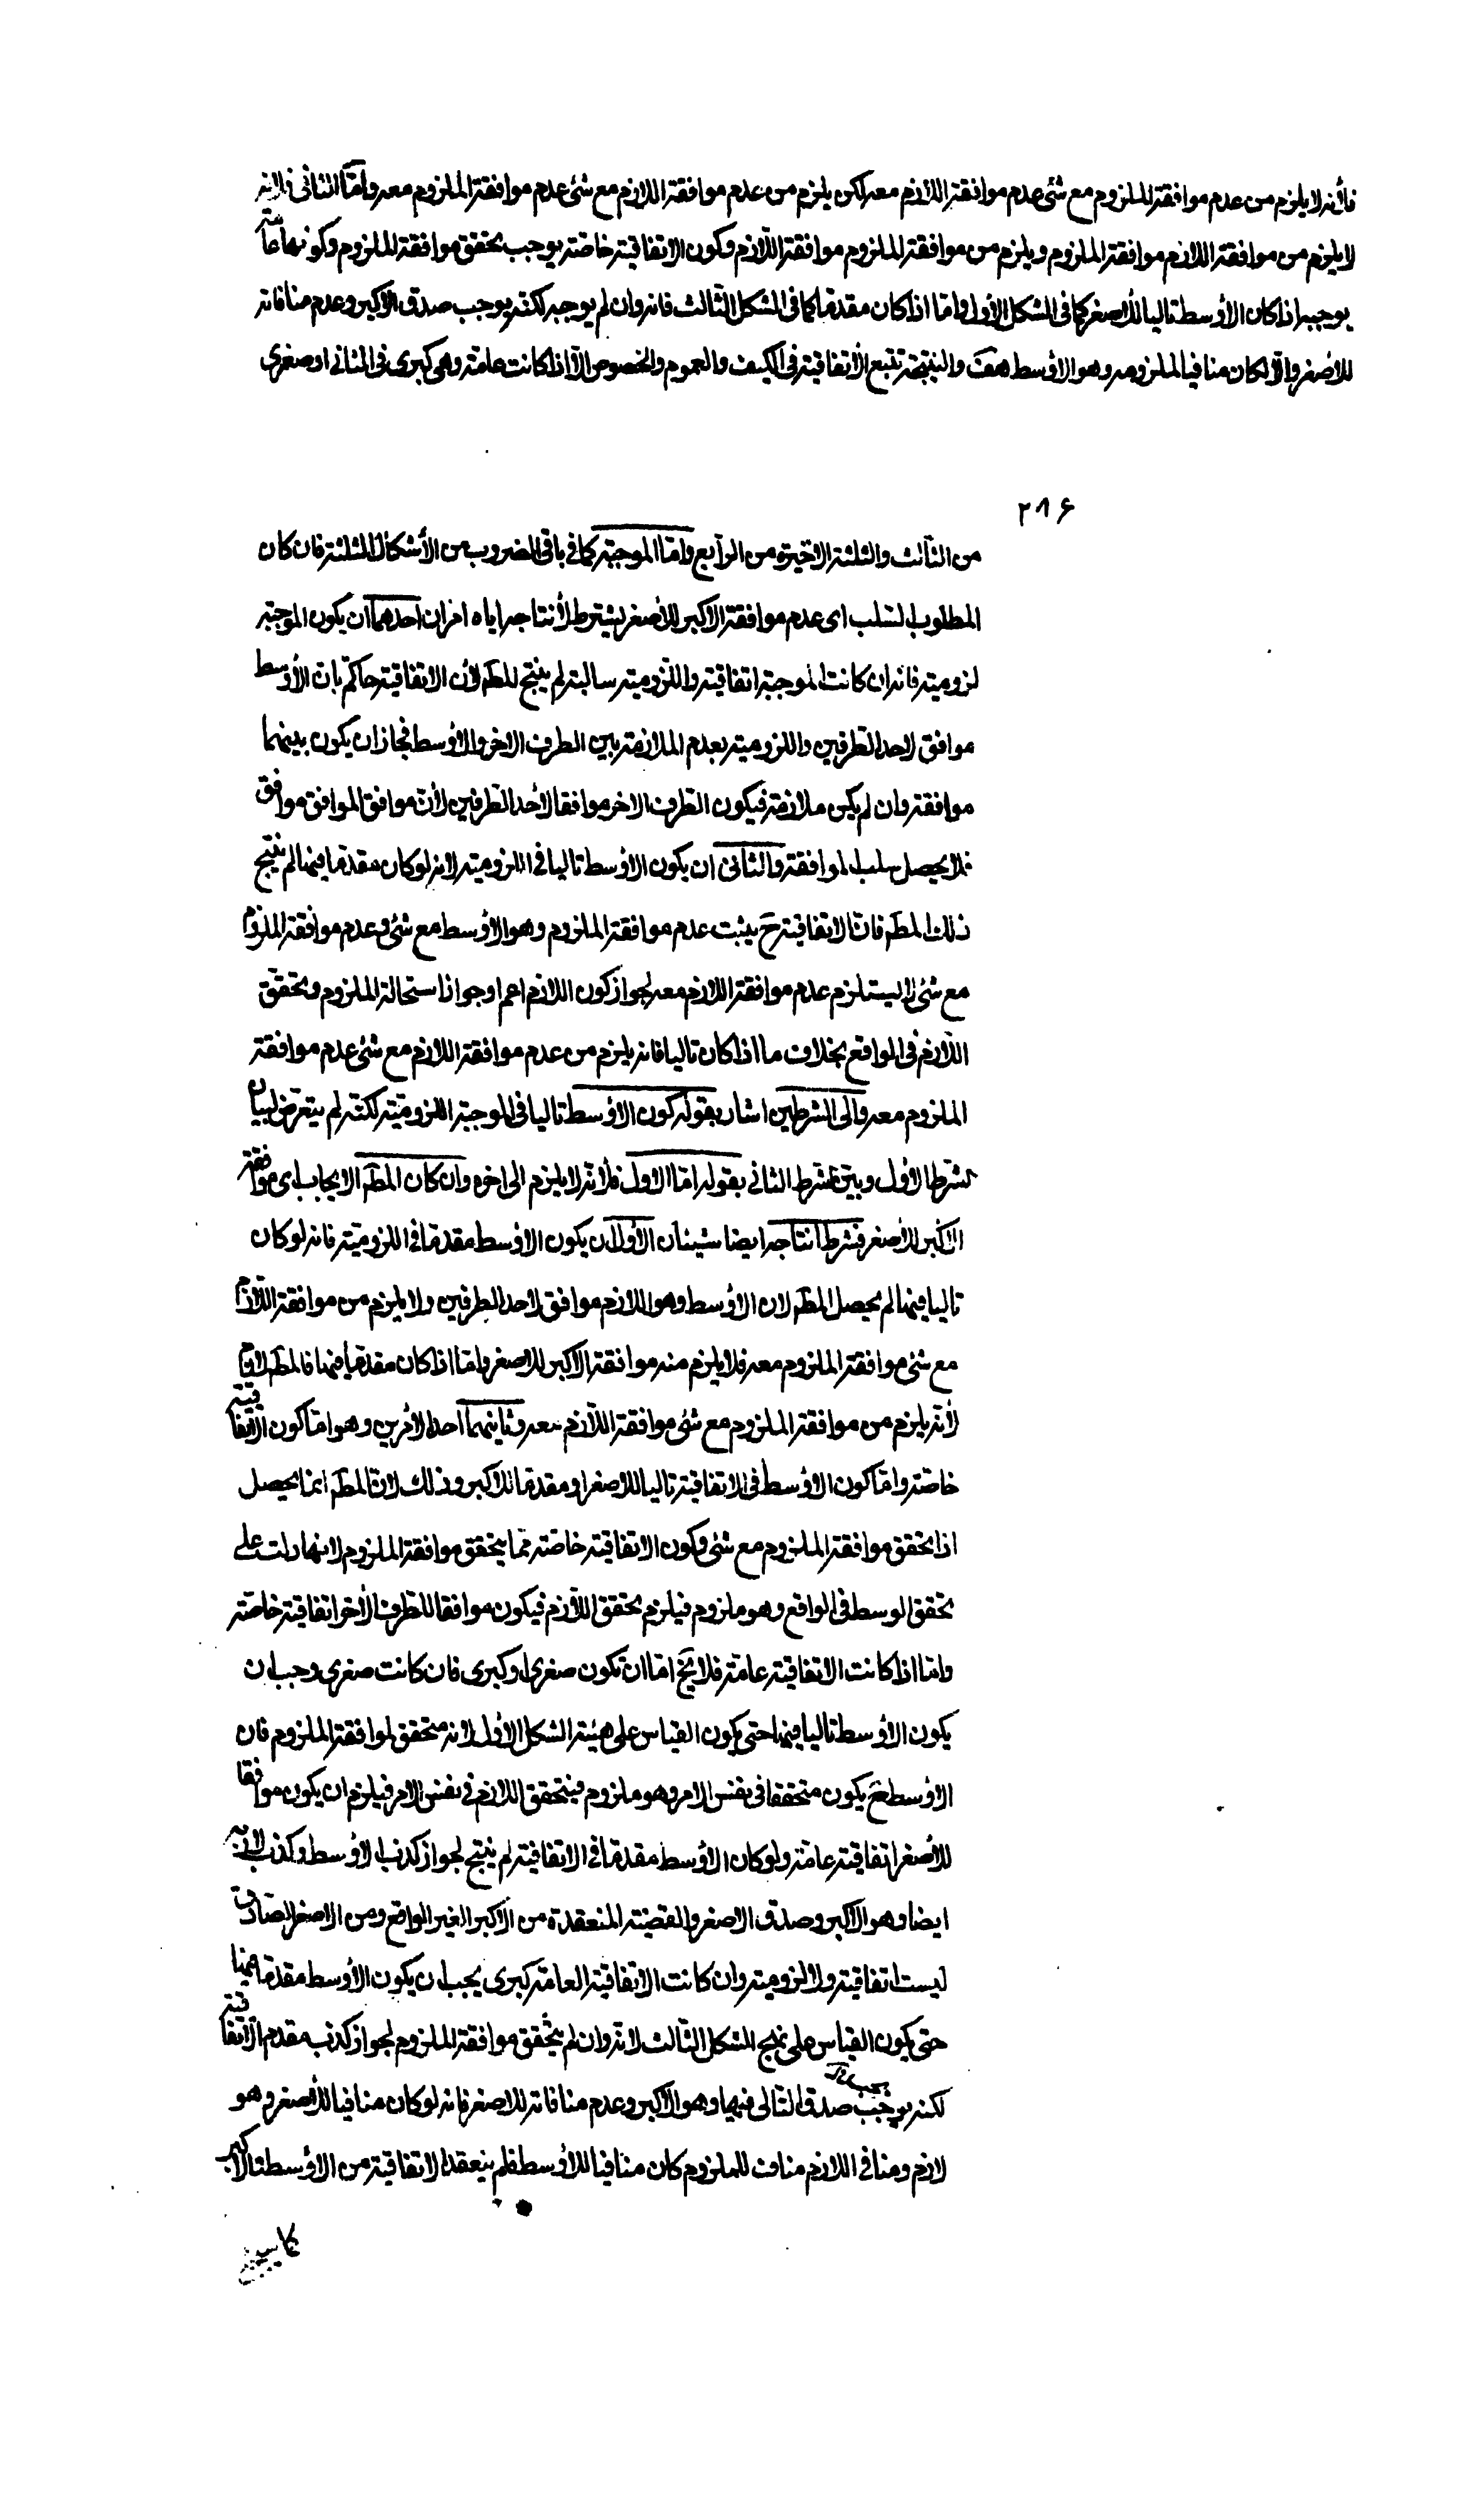 فلأنه لا يلزم من عدم موافقة الملزوم مع شئ عدم موافقة اللازم معه لكن يلزم من عدم موافقة اللازم مع شئ عدم موافقة الملزوم معه وأمّا الثانى فلانه
لا يلزم من موافقة اللازم موافقة الملزوم ويلزم من موافقة الملزوم موافقة اللازم وكون الاتفاقية خاصة يوجب تحقق موافقة الملزوم وكونها عامّة
يوجبه اذا كان الأوسط تاليا للأصغر كما فى الشكل الأول وامّا اذا كان مقدما كما فى الشكل الثالث فانه وان لم يوجبه لكنّه يوجب صدق الاكبر وعدم منافاته
للأصغر والّا لكان منافيا لملزومه وهو الأوسط هف والنتيجة تتبع الأتفاقية فى الكيف والعموم والخصوص الّا اذا كانت عامة وهى كبرى فى الثانى او صغرى
٢٨۶
من الثالث والثلثة الاخيرة من الرابع وامّا الموجبة كما فى باقى الضروب من الأشكال الثلثة فان كان
المطلوب السلب اى عدم موافقة الاكبر للأصغر يشترط لأنتاجه اياه امران احدهما ان يكون الموجبة
لزومية فانه ان كانت الموجبة اتفاقية واللزومية سالبة لم ينتج للمط لأن الاتفاقية حاكمة بان الأوسط
موافق لاحد الطرفين واللزومية بعدم الملازمة بين الطرف الاخر والأوسط فجاز ان يكون بينهما
موافقة وان لم يكن ملازمة فيكون الطرف الاخر موافقا لأحد الطرفين لأن موافق الموافق موافق
فلا يحصل سلب الموافقة والثانى ان يكون الاوسط تاليا فى اللزومية لانه لو كان مقدما فيها لم ينتج
ذلك المط فان الاتفاقية ح يثبت عدم موافقة الملزوم وهو الأوسط مع شئ وعدم موافقة الملزوم
مع شئ لا يستلزم عدم موافقة اللازم معه لجواز كون اللازم اعم او جواز استحالة الملزوم وتحقق
اللازم فى الواقع بخلاف ما اذا كان تاليا فانه يلزم من عدم موافقة اللازم مع شئ عدم موافقة
الملزوم معه والى الشرطين اشار بقوله كون الاوسط تاليا فى الموجبة اللزومية لكنّه لم يتعرض لبيان
شرط الأول وبيّن شرط الثانى بقوله امّا الاول فلأنه لا يلزم الى اخره وان كان المط الايجاب اى موافقة
الاكبر للأصغر فشرط انتاجه ايضا شيئان الأول ان يكون الاوسط مقدما فى اللزومية فانه لو كان
تاليا فيها لم يحصل المط لان الاوسط وهو اللازم موافق لاحد الطرفين ولا يلزم من موافقة اللازم
مع شئ موافقة الملزوم معه فلا يلزم منه موافقة الاكبر للاصغر وامّا اذا كان مقدما فيها فالمط لازم
لأنه يلزم من موافقة الملزوم مع شئ موافقة اللازم معه وثانيهما احد الأمرين وهو امّا كون الاتفاقية
خاصة وامّا كون الاوسط فى الاتفاقية تاليا للاصغر او مقدما للاكبر وذلك لان المط انما يحصل
اذا تحقق موافقة الملزوم مع شئ وكون الاتفاقية خاصة مما يتحقق موافقة الملزوم لانها دلت على
تحقق الوسط فى الواقع وهو ملزوم فيلزم تحقق اللازم فيكون موافقا للطرف الأخر اتفاقية خاصة
وامّا اذا كانت الاتفاقية عامة فلا يخ امّا ان تكون صغرى او كبرى فان كانت صغرى وجب ان
يكون الأوسط تاليا فيها حتى يكون القياس على هيئة الشكل الأول لانه متحقق لموافقة الملزوم فان
الاوسط ح يكون متحققا فى نفس الامر وهو ملزوم فيتحقق اللازم فى نفس الامر فيلزم ان يكون موافقا
للأصغر اتفاقية عامة ولو كان الأوسط مقدما فى الاتفاقية لم ينتج لجواز كذب الاوسط وكذب لازمه
ايضا وهو الاكبر وصدق الاصغر والقضية المنعقدة من الاكبر الغير الواقع ومن الاصغر الصادق
ليست اتفاقية ولا لزومية وان كانت الاتفاقية العامة كبرى يجب ان يكون الأوسط مقدما فيها
حتى يكون القياس على نهج الشكل الثالث لانه وان لم يتحقق موافقة الملزوم لجواز كذب مقدم الاتفاقية
لكنه يوجب صدق التالى فيها وهو الاكبر وعدم منافاته للاصغر فانه لو كان منافيا للأصغر وهو
لازم ومنافى اللازم مناف للملزوم كان منافيا للأوسط فلم ينعقد الاتفاقية من الاوسط والاكبر